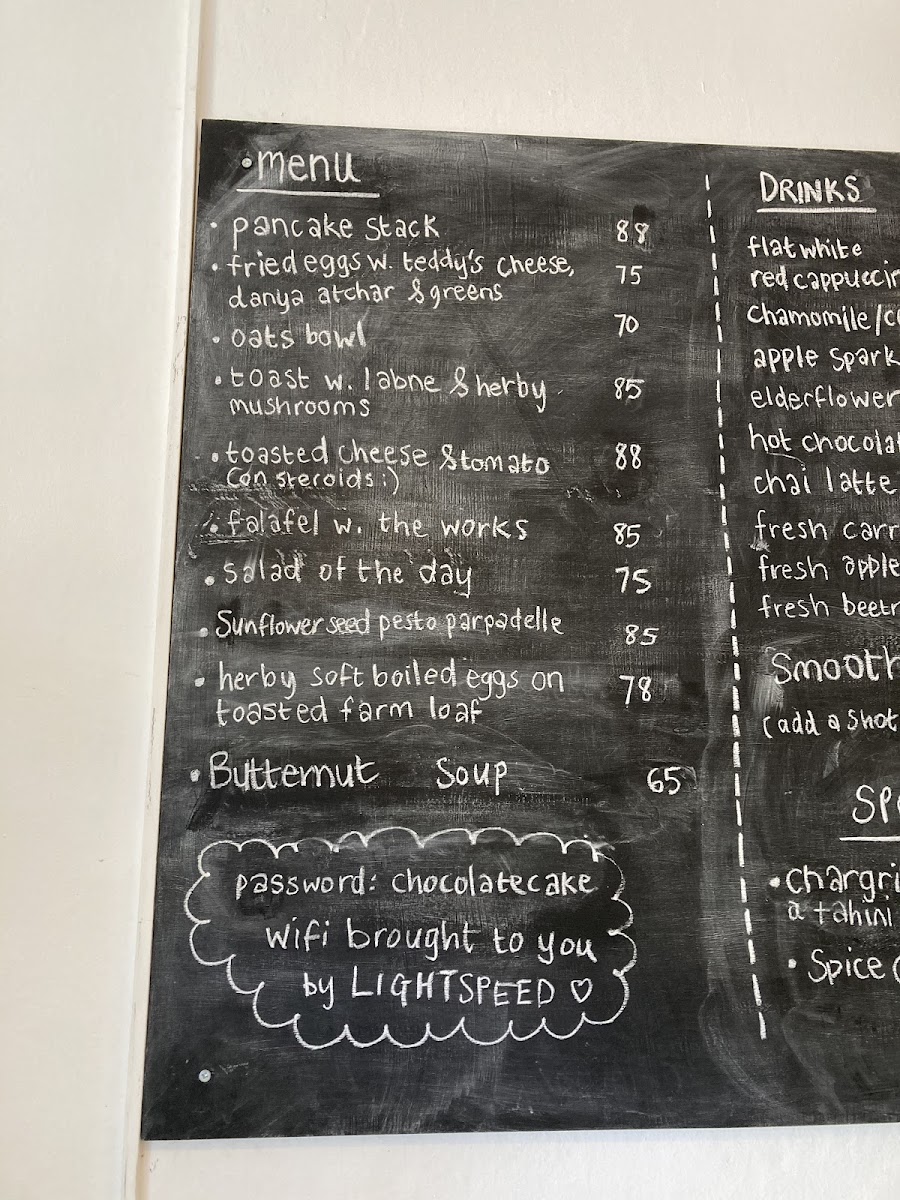 menu
• pancake stack 88
• fried eggs w. teddy's cheese, 75
danya atchar & greens
• oats bowl 70
• toast w. labne & herby 85
mushrooms
• toasted cheese & tomato 88
(on steroids :)
• falafel w. the works 85
• salad of the day 75
• Sunflower seed pesto parpadelle 85
• herby soft boiled eggs on 78
toasted farm loaf
• Butternut Soup 65
password: chocolatecake
wifi brought to you
by LIGHTSPEED ♡
DRINKS
flat white
red cappuccin
chamomile/
apple spark
elderflower
hot chocolat
chai latte
fresh carr
fresh apple
fresh beetr
Smooth
(add a shot
SP
• chargri
a tahini
• Spice (